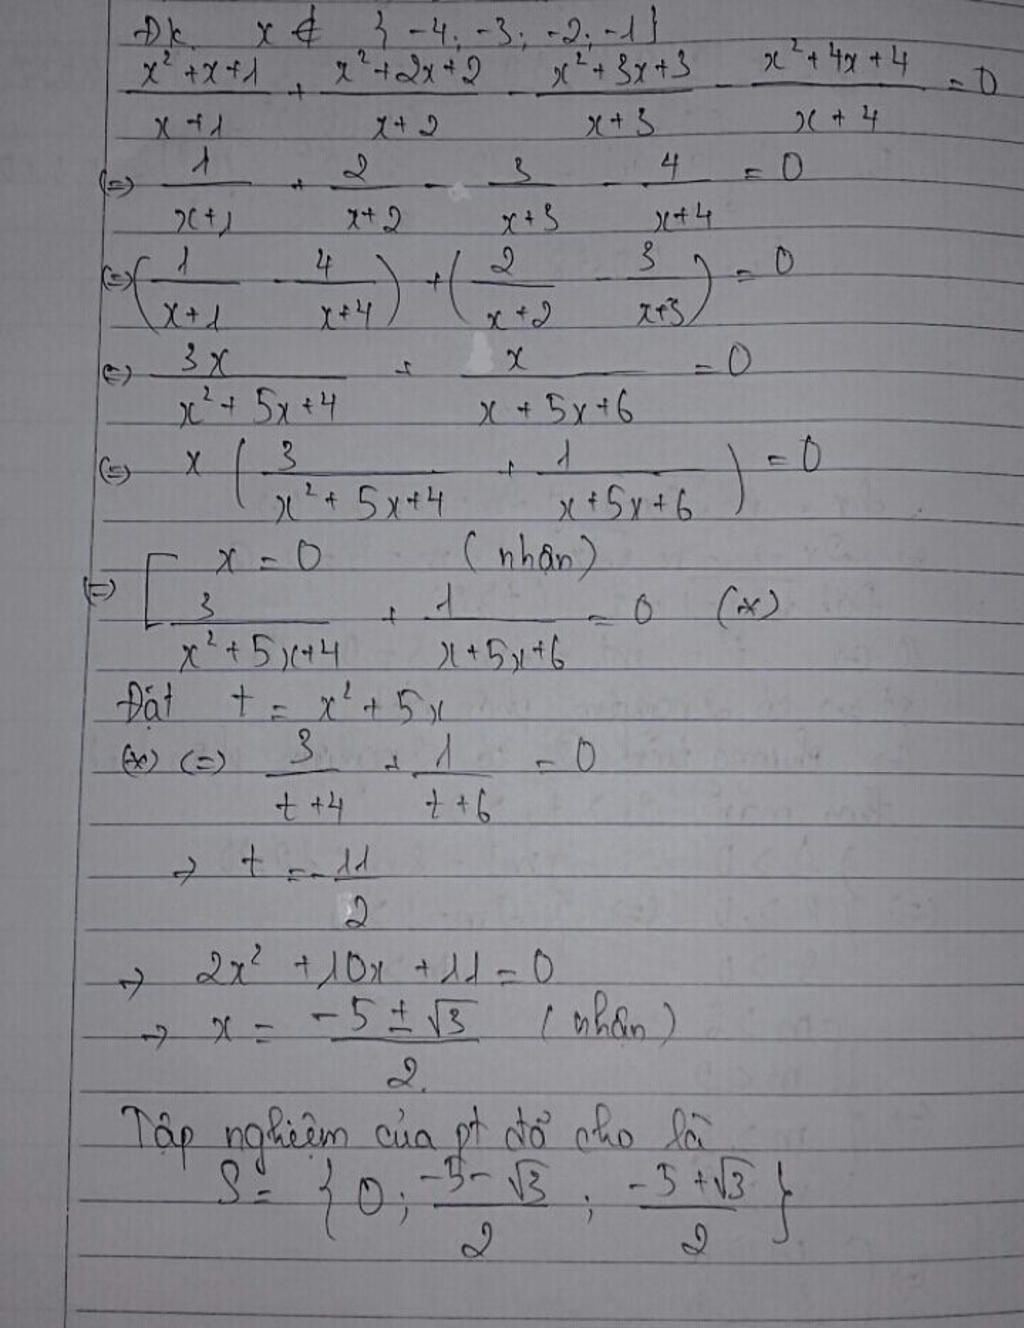 Đk x ∉ {-4; -3; -2; -1}
(x² + x + 1)/(x + 1) + (x² + 2x + 2)/(x + 2) - (x² + 3x + 3)/(x + 3) - (x² + 4x + 4)/(x + 4) = 0
(=) 1/(x+1) + 2/(x+2) - 3/(x+3) - 4/(x+4) = 0
(=) (1/(x+1) - 4/(x+4)) + (2/(x+2) - 3/(x+3)) = 0
(=) -3x/(x² + 5x + 4) + -x/(x + 5x + 6) = 0
(=) x (3/(x² + 5x + 4) + 1/(x + 5x + 6)) = 0
(=) [ x = 0 (nhận)
3/(x² + 5x + 4) + 1/(x + 5x + 6) = 0 (*)
Đặt t = x² + 5x
(*) (=) 3/(t + 4) + 1/(t + 6) = 0
→ t = -11/2
→ 2x² + 10x + 11 = 0
→ x = (-5 ± √3)/2. (nhận)
Tập nghiệm của pt đã cho là
S = {0; (-5 - √3)/2; (-5 + √3)/2}